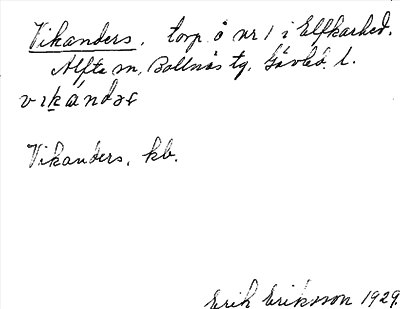 Vikanders, torp å nr 1 i Elfkarhed.
Alfta sn, Bollnäs tg, Gävleb. l.
vikándəs
Vikanders, kb.
Erik Eriksson 1929.